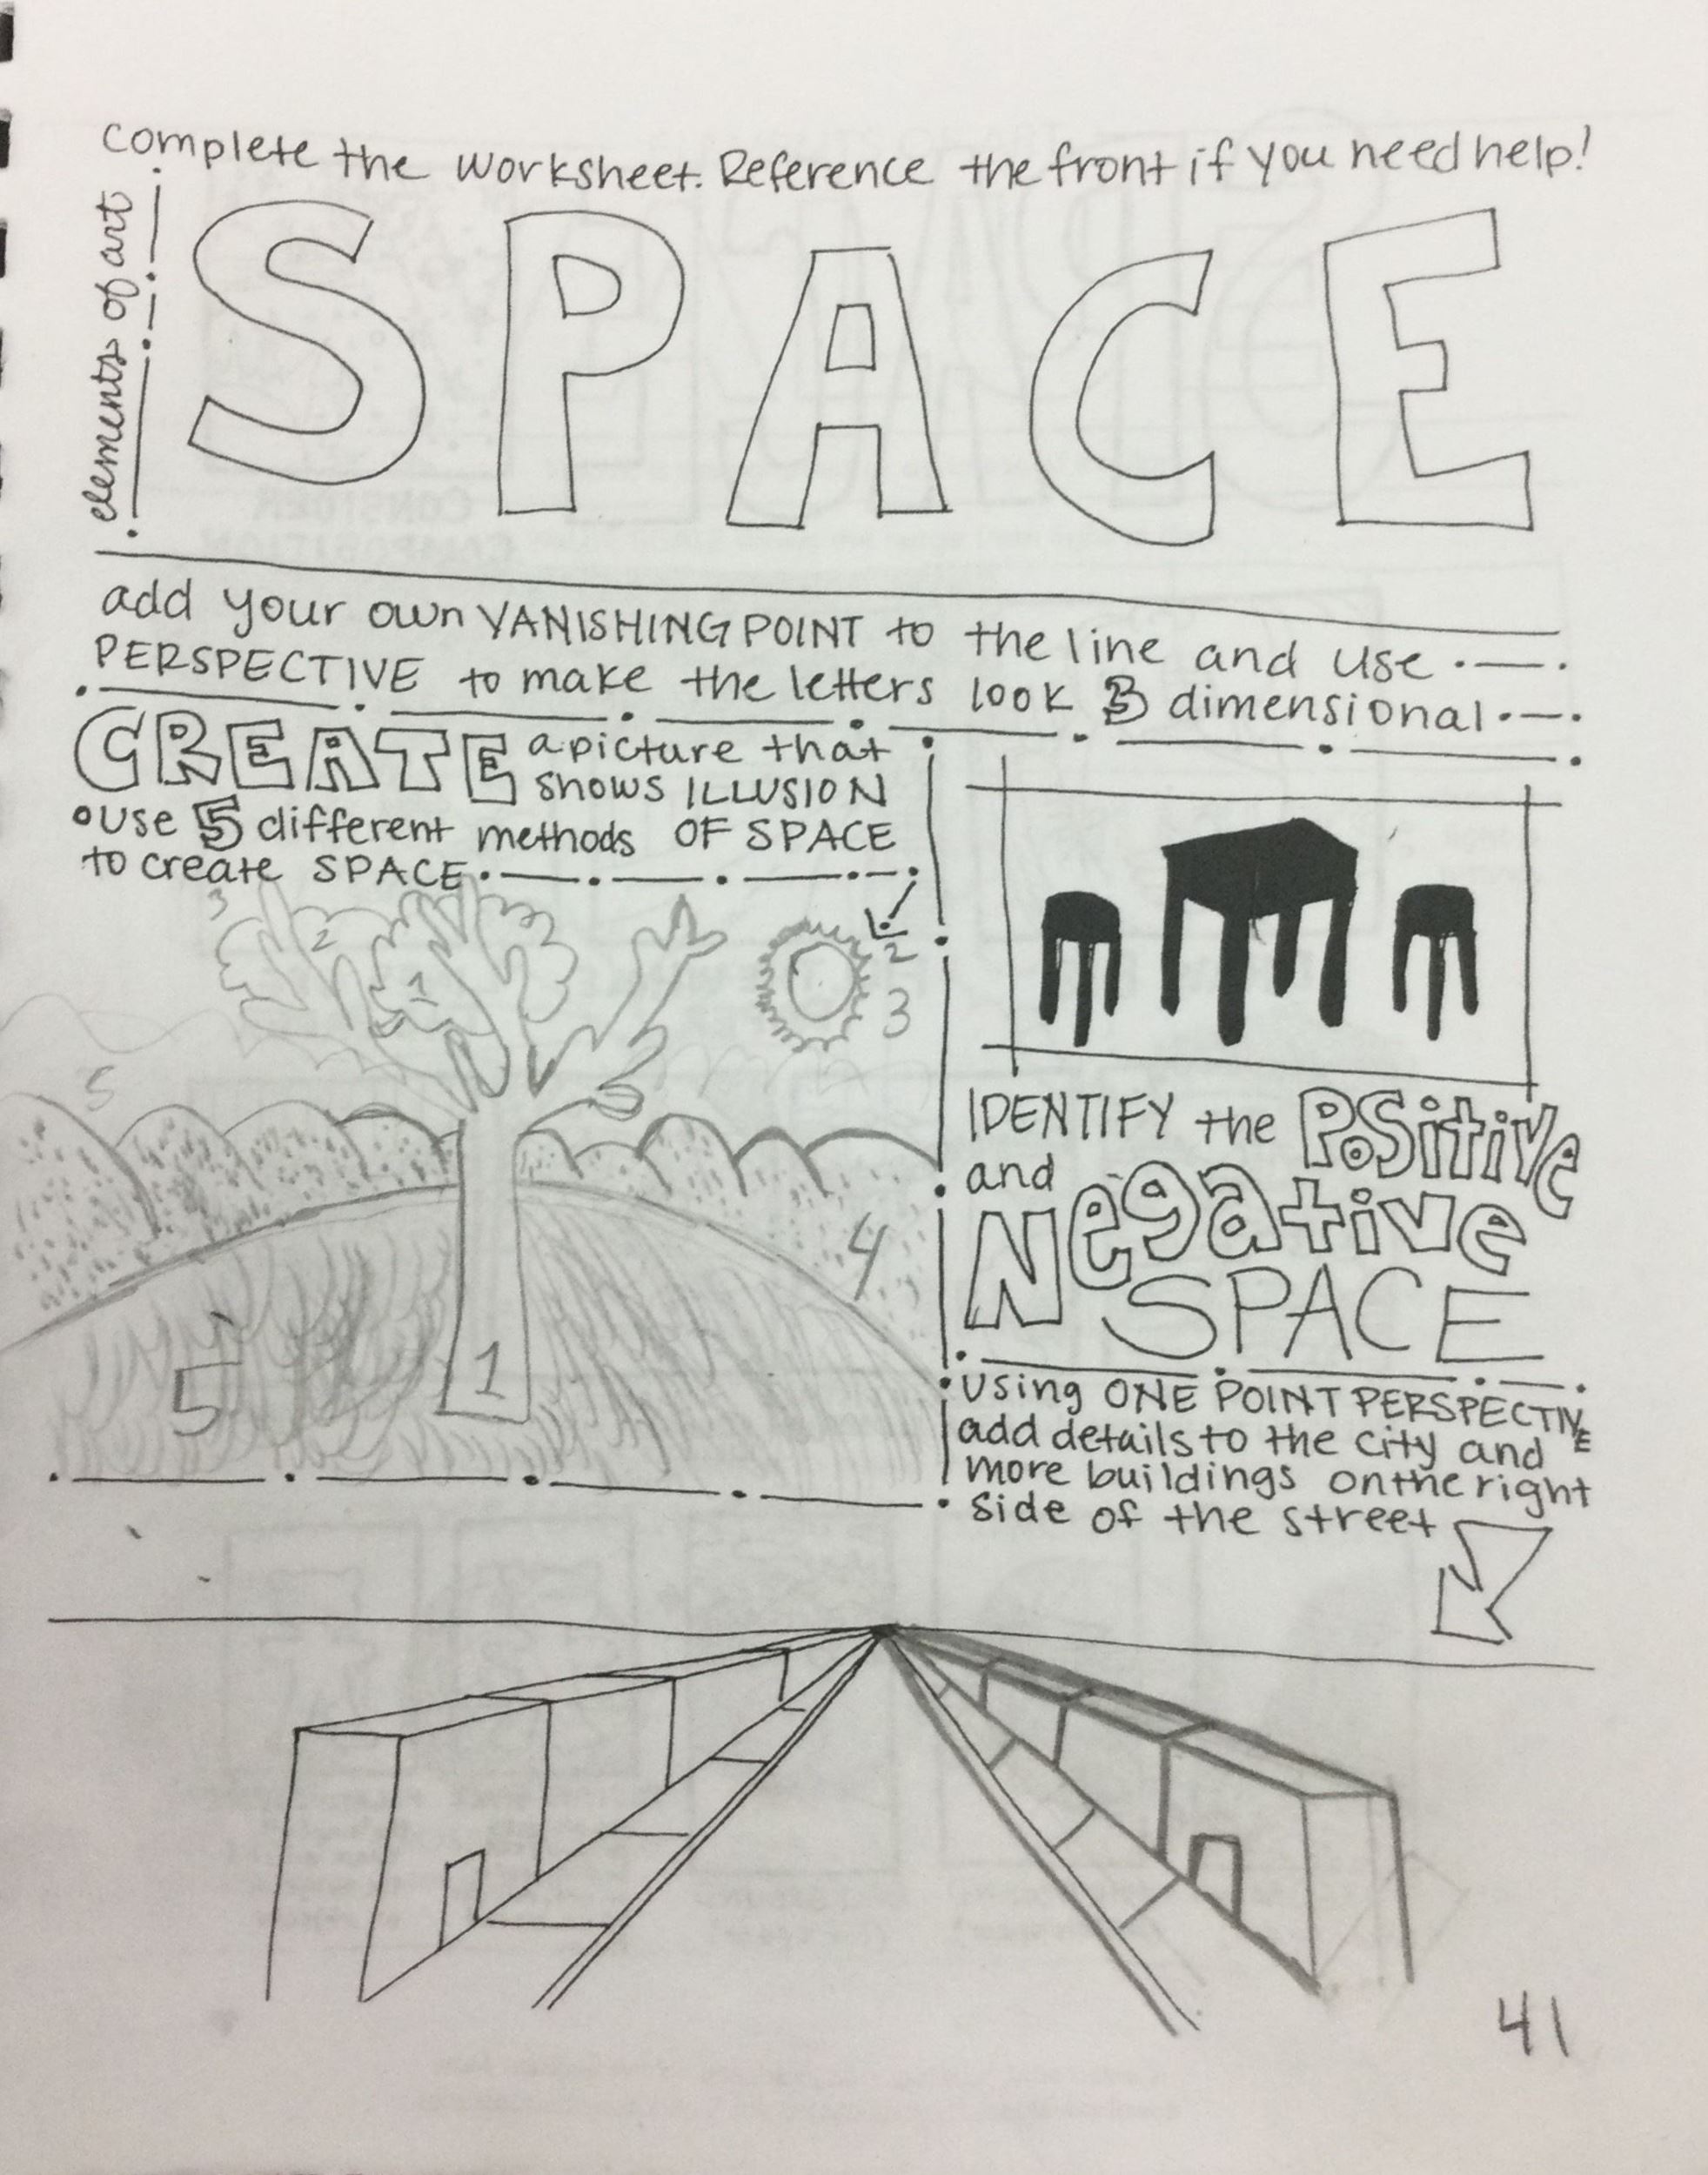 complete the worksheet. Reference the front if you need help!
elements of art
SPACE
add your own VANISHING POINT to the line and use
PERSPECTIVE to make the letters look 3 dimensional
CREATE a picture that
shows ILLUSION
• Use 5 different methods OF SPACE
to create SPACE
3
2
1
2
3
5
4
5
1
IDENTIFY the Positive
and
Negative
SPACE
• Using ONE POINT PERSPECTIVE
add details to the city and
more buildings on the right
side of the street
41